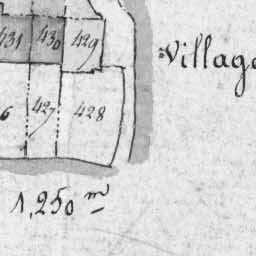 431 430 429
Village
6 427 428
1,250 m